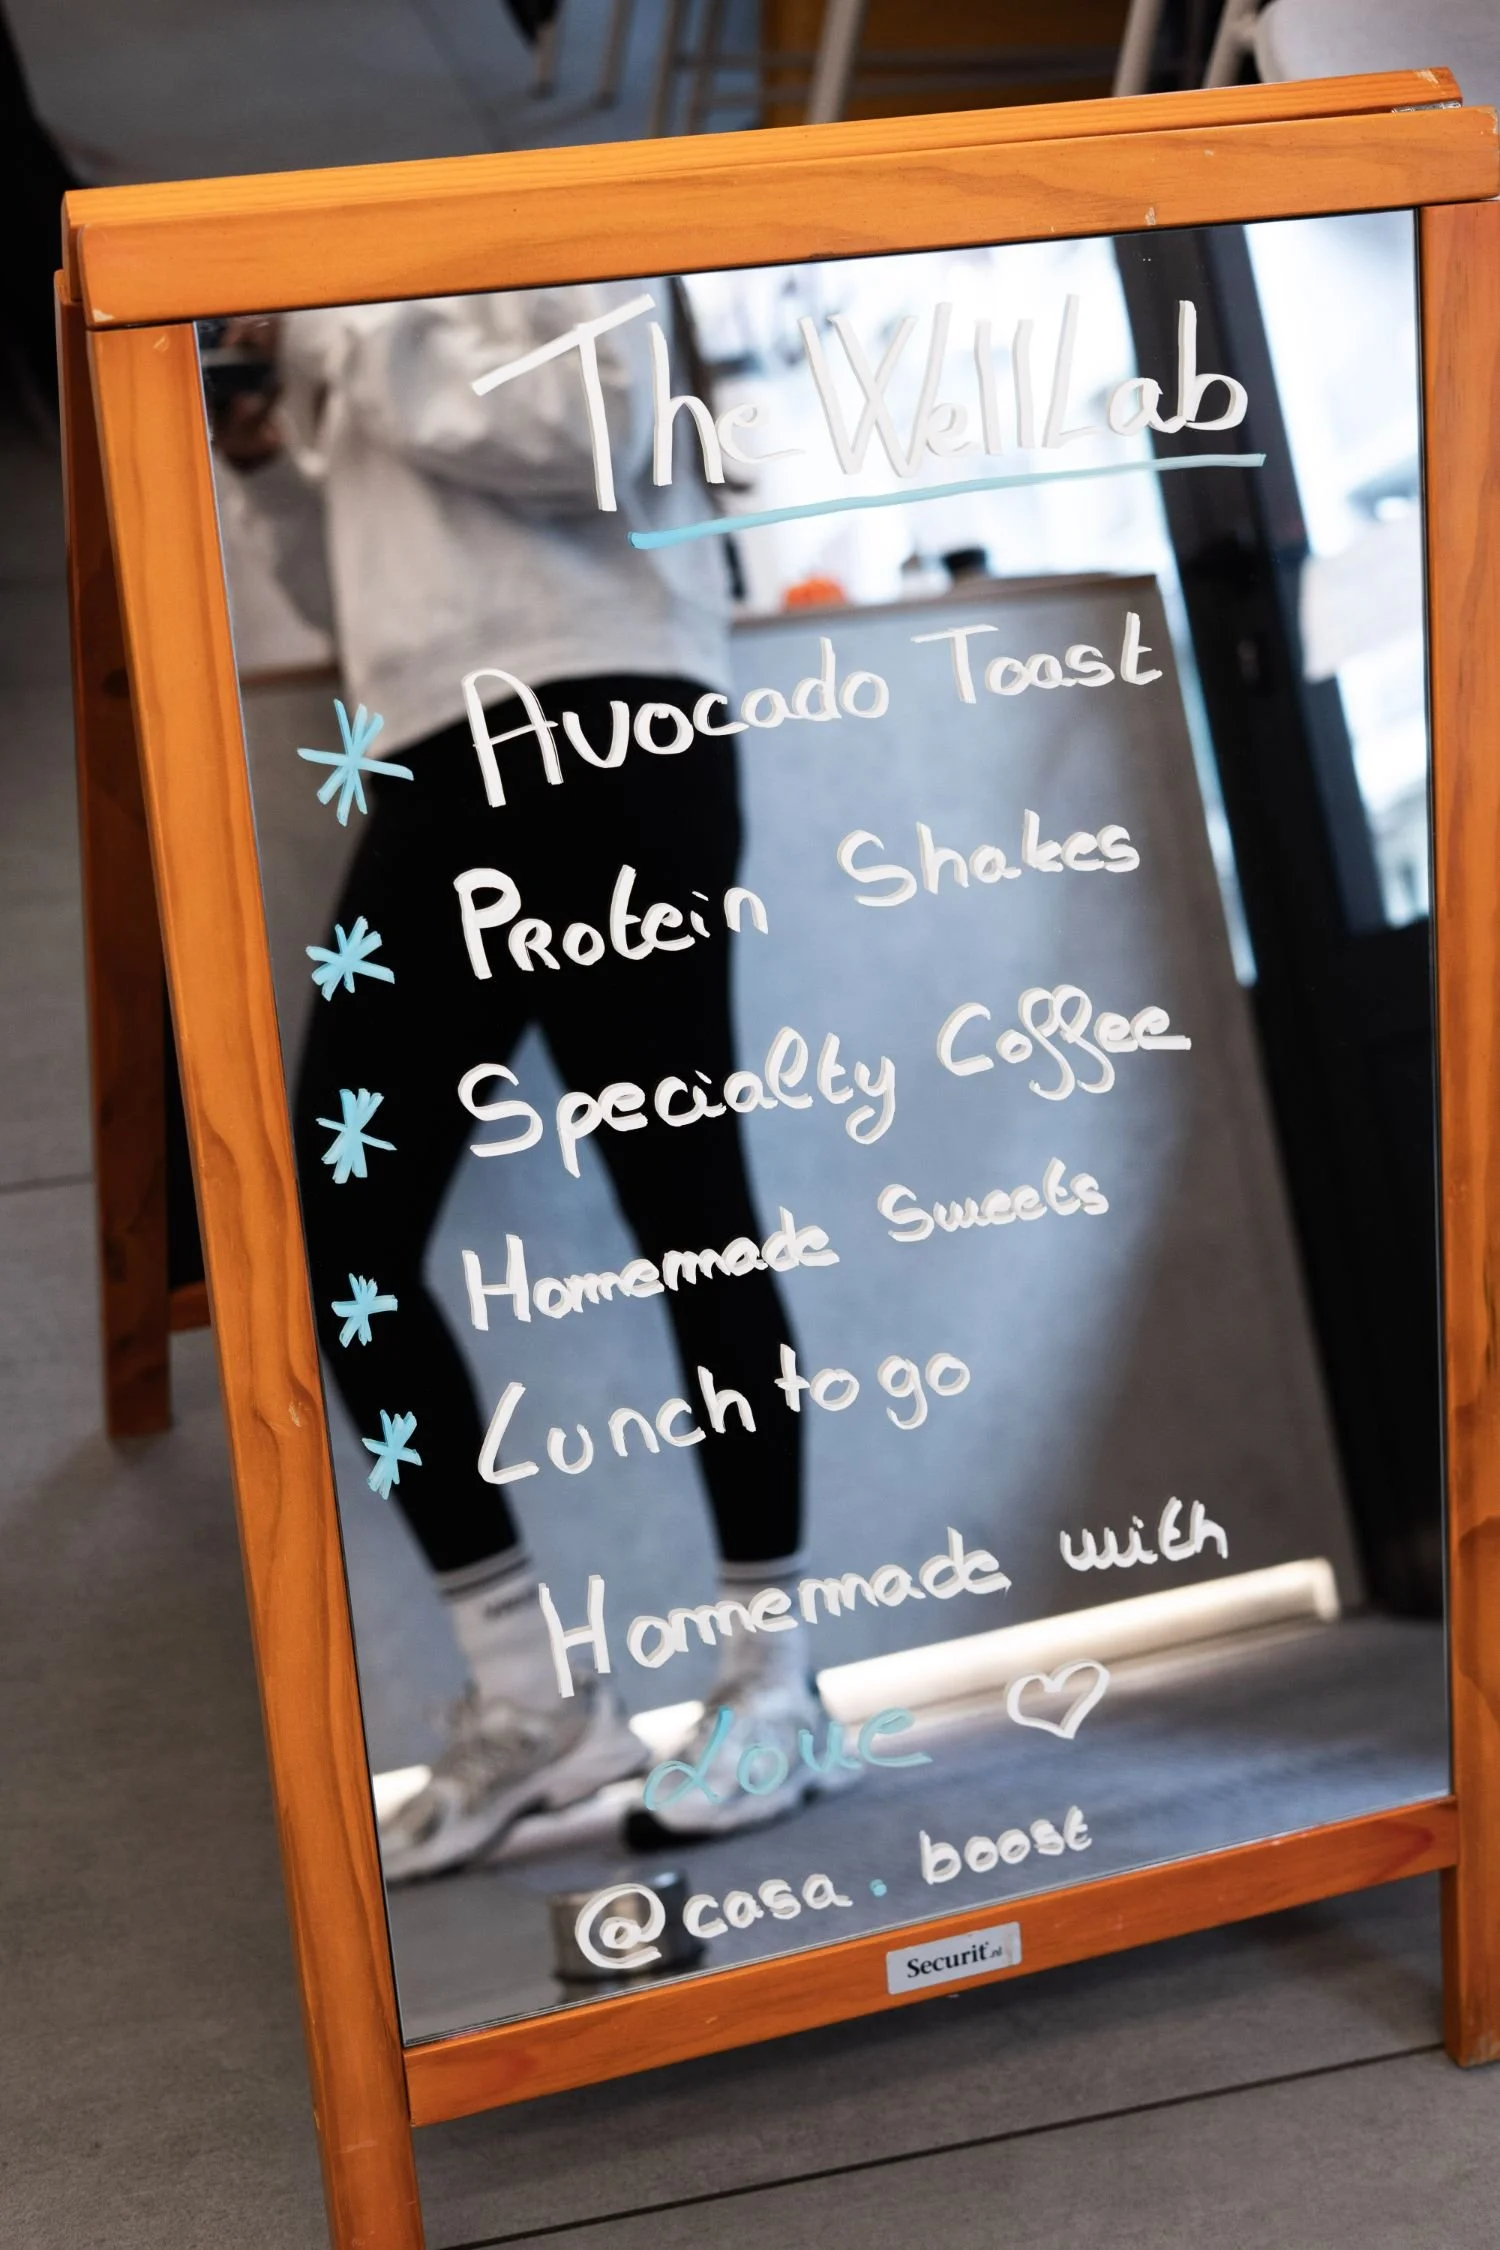 The WellLab
* Avocado Toast
* Protein Shakes
* Specialty Coffee
* Homemade Sweets
* Lunch to go
Homemade with
Love ♡
@casa.boost
Securit.nl